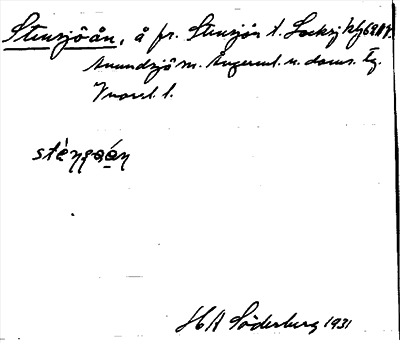 Stensjöån, å fr. Stensjön t. Locksj
Anundsjö sn. Ångerml. n. doms. Tg.
Vnorrl. l.
stèŋʃøáŋ
HA Söderberg 1931